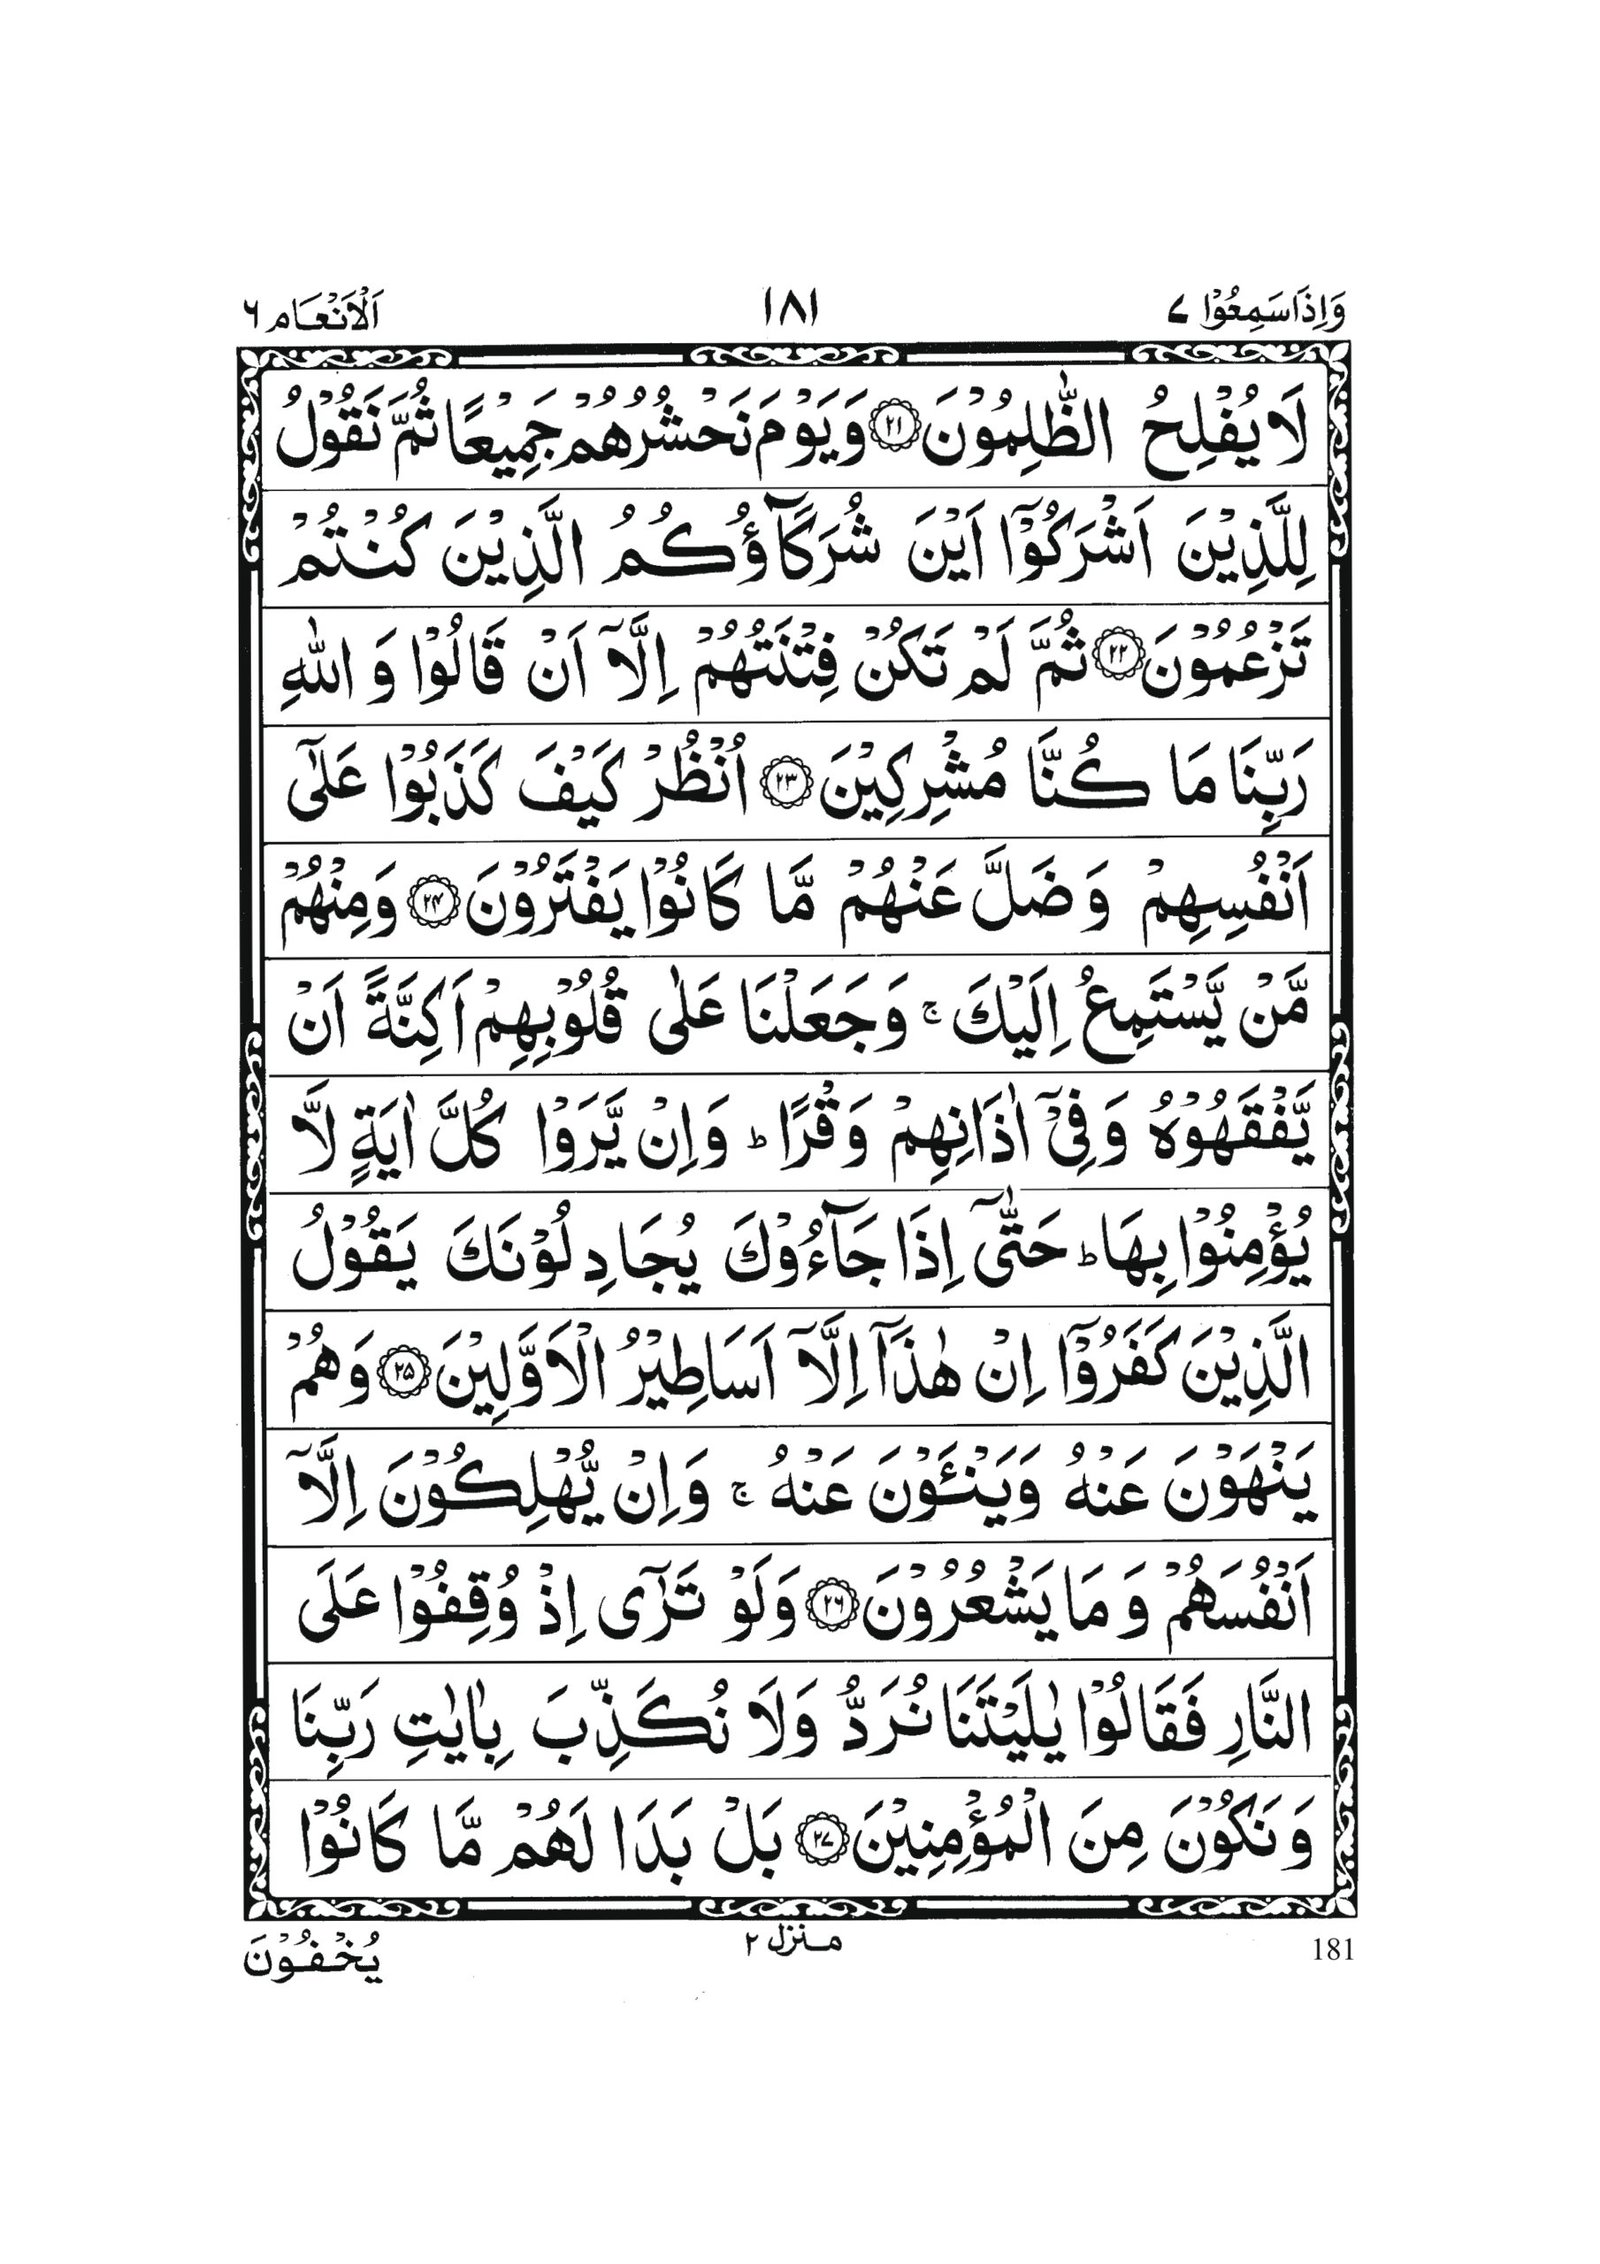 وَاِذَاسَمِعُوْا ٧ ١٨١ اَلْاَنْعَام ٦
لَا يُفْلِحُ الظّٰلِمُوْنَ ۝٢١ وَيَوْمَ نَحْشُرُهُمْ جَمِيْعًا ثُمَّ نَقُوْلُ
لِلَّذِيْنَ اَشْرَكُوْۤا اَيْنَ شُرَكَآؤُكُمُ الَّذِيْنَ كُنْتُمْ
تَزْعُمُوْنَ ۝٢٢ ثُمَّ لَمْ تَكُنْ فِتْنَتُهُمْ اِلَّاۤ اَنْ قَالُوْا وَ اللّٰهِ
رَبِّنَا مَا كُنَّا مُشْرِكِيْنَ ۝٢٣ اُنْظُرْ كَيْفَ كَذَبُوْا عَلٰۤى
اَنْفُسِهِمْ وَ ضَلَّ عَنْهُمْ مَّا كَانُوْا يَفْتَرُوْنَ ۝٢٤ وَمِنْهُمْ
مَّنْ يَّسْتَمِعُ اِلَيْكَ ۚ وَجَعَلْنَا عَلٰى قُلُوْبِهِمْ اَكِنَّةً اَنْ
يَّفْقَهُوْهُ وَ فِيْۤ اٰذَانِهِمْ وَقْرًا ؕ وَاِنْ يَّرَوْا كُلَّ اٰيَةٍ لَّا
يُؤْمِنُوْا بِهَا ؕ حَتّٰۤى اِذَا جَآءُوْكَ يُجَادِلُوْنَكَ يَقُوْلُ
الَّذِيْنَ كَفَرُوْۤا اِنْ هٰذَاۤ اِلَّاۤ اَسَاطِيْرُ الْاَوَّلِيْنَ ۝٢٥ وَهُمْ
يَنْهَوْنَ عَنْهُ وَيَنْـَٔوْنَ عَنْهُ ۚ وَاِنْ يُّهْلِكُوْنَ اِلَّاۤ
اَنْفُسَهُمْ وَ مَا يَشْعُرُوْنَ ۝٢٦ وَلَوْ تَرٰۤى اِذْ وُقِفُوْا عَلَى
النَّارِ فَقَالُوْا يٰلَيْتَنَا نُرَدُّ وَلَا نُكَذِّبَ بِاٰيٰتِ رَبِّنَا
وَ نَكُوْنَ مِنَ الْمُؤْمِنِيْنَ ۝٢٧ بَلْ بَدَا لَهُمْ مَّا كَانُوْا
181 منزل ٢ يُخْفُوْنَ